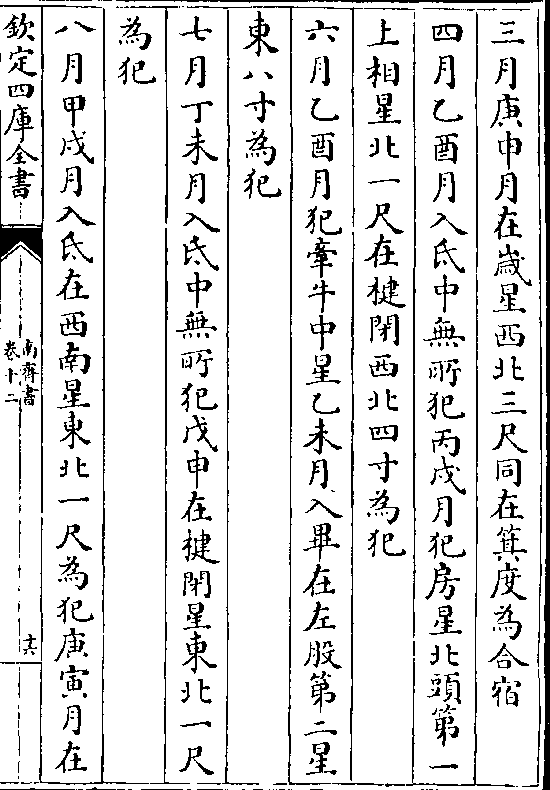 三月庚申月在歳星西北三尺同在箕度為合宿
四月乙酉月入氐中無所犯丙戌月犯房星北頭第一
上相星北一尺在楗閉西北四寸為犯
六月乙酉月犯牽牛中星乙未月入畢在左股第二星
東八寸為犯
七月丁未月入氐中無所犯戊申在楗閉星東北一尺
為犯
八月甲戌月入氐在西南星東北一尺為犯庚寅月在
欽定四庫全書
南齊書
卷十二
十六